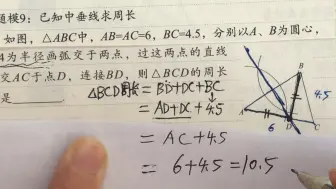 题模9：已知中垂线求周长
如图，△ABC中，AB=AC=6，BC=4.5，分别以A、B为圆心，
4为半径画弧交于两点，过这两点的直线
交AC于点D，连接BD，则△BCD的周长
是
△BCD周长 = BD+DC+BC
= AD+DC+4.5
= AC+4.5
= 6+4.5=10.5
A
B
C
D
6
4.5